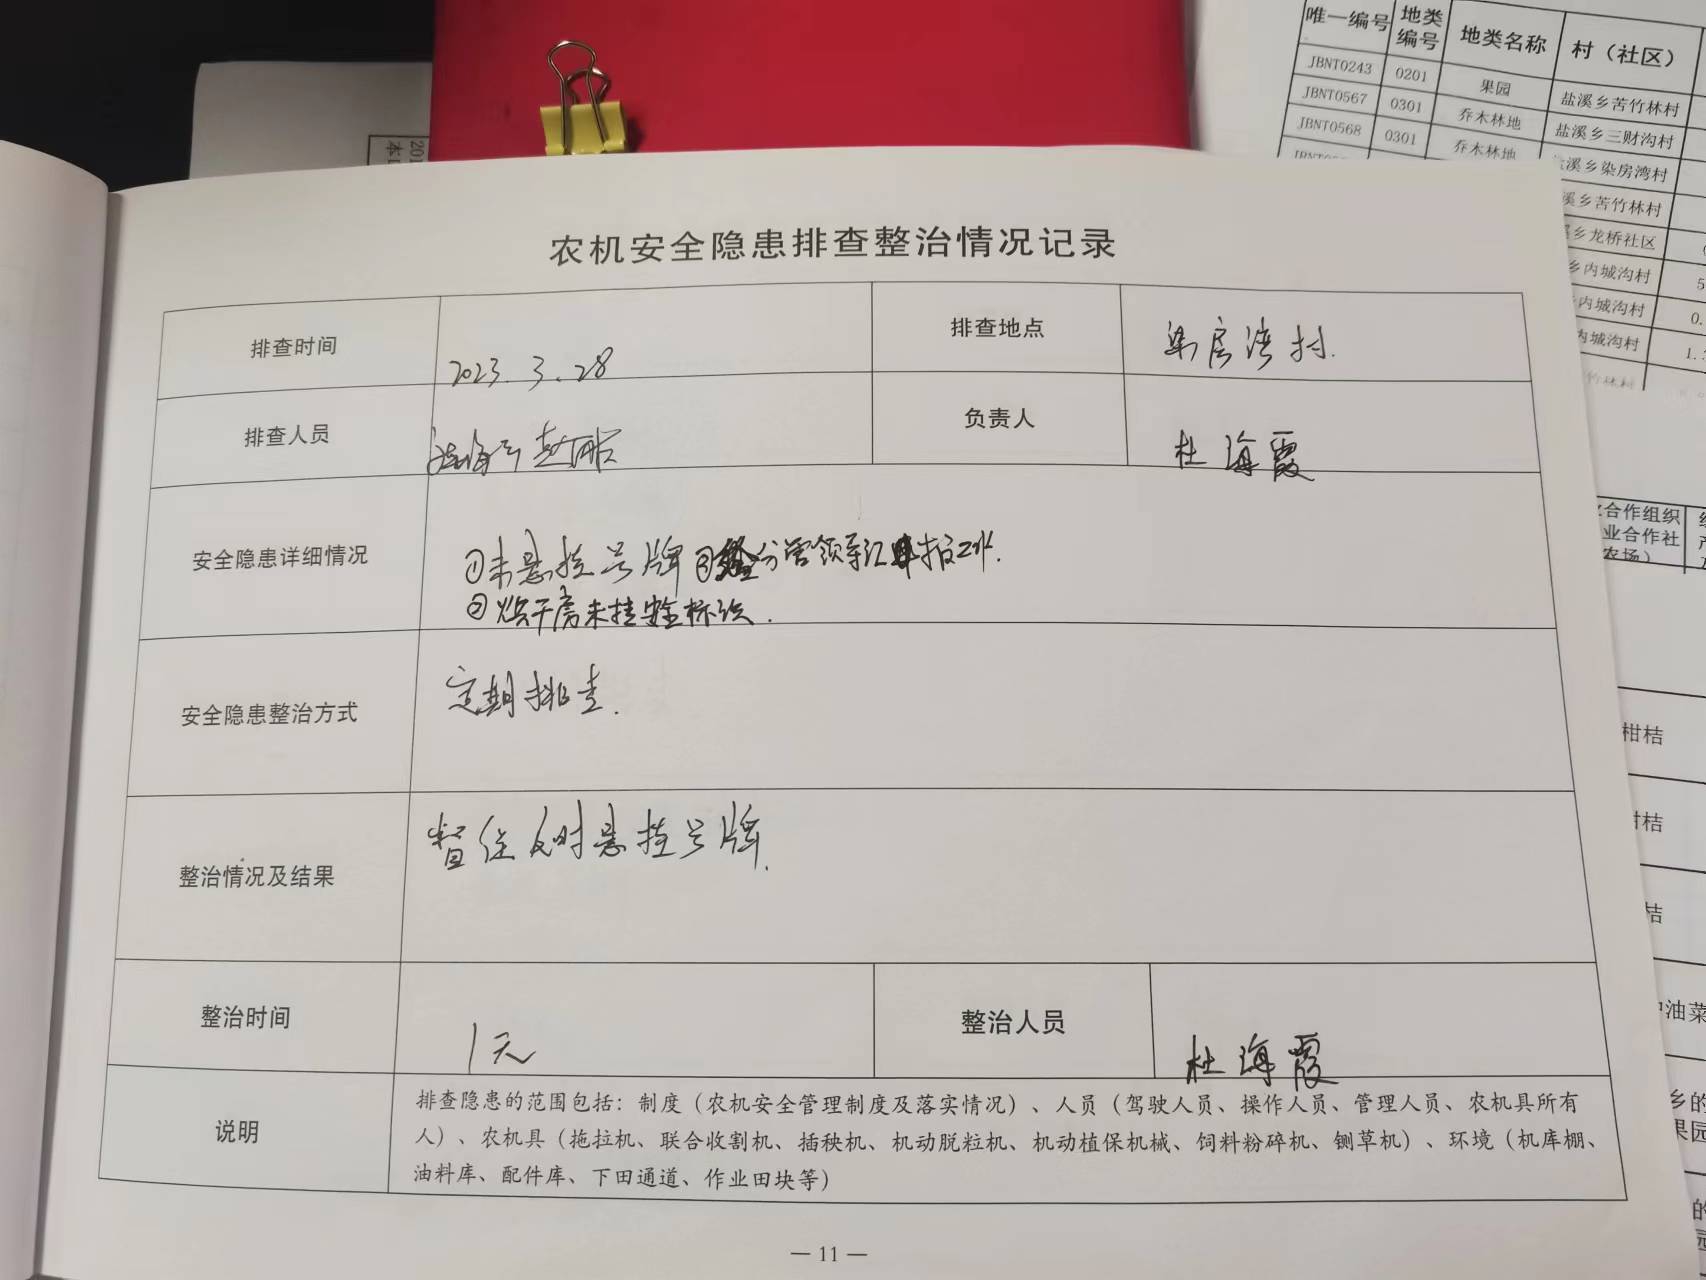 唯一编号 地类编号 地类名称 村（社区）
JBNT0243 0201 果园 盐溪乡苦竹林村
JBNT0567 0301 乔木林地 盐溪乡三财沟村
JBNT0568 0301 乔木林地 盐溪乡染房湾村
溪乡苦竹林村
乡龙桥社区
乡内城沟村 5
内城沟村 0.
内城沟村 1.
竹林村
农机安全隐患排查整治情况记录
排查时间 2023.3.28 排查地点 染房湾村.
排查人员 负责人 杜海霞
安全隐患详细情况 ①未悬挂号牌 ③ 分管领导汇报工作.
②烘干房未挂安全标识.
安全隐患整治方式 定期排查.
整治情况及结果 督促及时悬挂号牌.
整治时间 1天 整治人员 杜海霞
说明 排查隐患的范围包括：制度（农机安全管理制度及落实情况）、人员（驾驶人员、操作人员、管理人员、农机具所有
人）、农机具（拖拉机、联合收割机、插秧机、机动脱粒机、机动植保机械、饲料粉碎机、铡草机）、环境（机库棚、
油料库、配件库、下田通道、作业田块等）
— 11 —
合作组织
业合作社
农场）
柑桔
柑桔
桔
油菜
乡的
果园
的
园